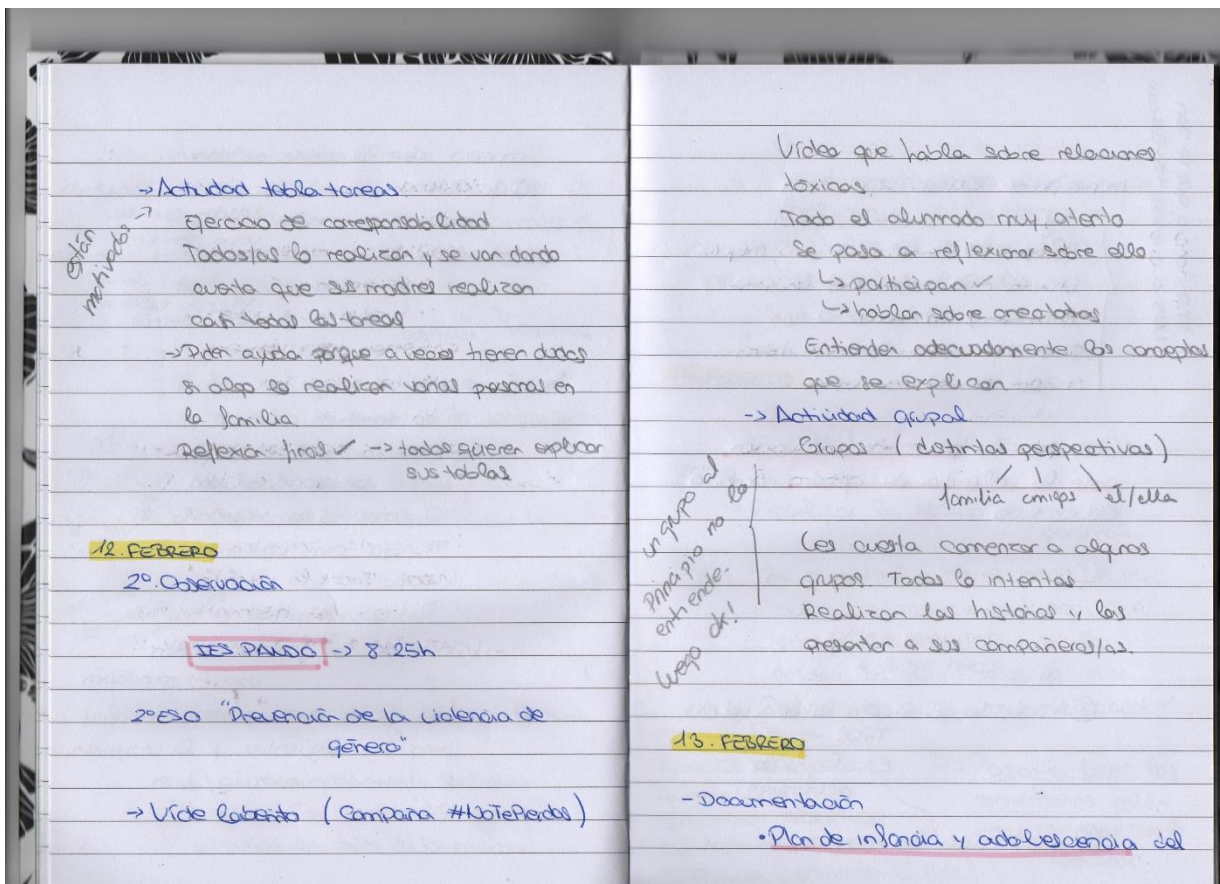 → Actividad tabla tareas.
están
motivados
Ejercicio de corresponsabilidad
Todos/as lo realizan y se van dando
cuenta que sus madres realizan
casi todas las tareas
→ Piden ayuda porque a veces tienen dudas
si algo lo realizan varias personas en
la familia
Reflexión final ✓ → todos quieren explicar
sus tablas
12. FEBRERO
2ª Observación
IES. PANDO → 8.25h
2º ESO "Prevención de la violencia de
género"
→ Víde laberinto (Campaña #NoTePierdas)
Vídeo que habla sobre relaciones
tóxicas.
Todo el alumnado muy atento
Se pasa a reflexionar sobre ello
↳ participan ✓
↳ hablan sobre
Entienden adecuadamente los conceptos
que se explican
→ Actividad grupal
Grupos (distintas perspectivas)
familia amigos él/ella
un grupo al
principio no lo
entiende.
luego ok!
Les cuesta comenzar a algunos
grupos. Todos lo intentan
Realizan las historias y las
presentan a sus compañeros/as.
13. FEBRERO
- Documentación
• Plan de infancia y adolescencia del